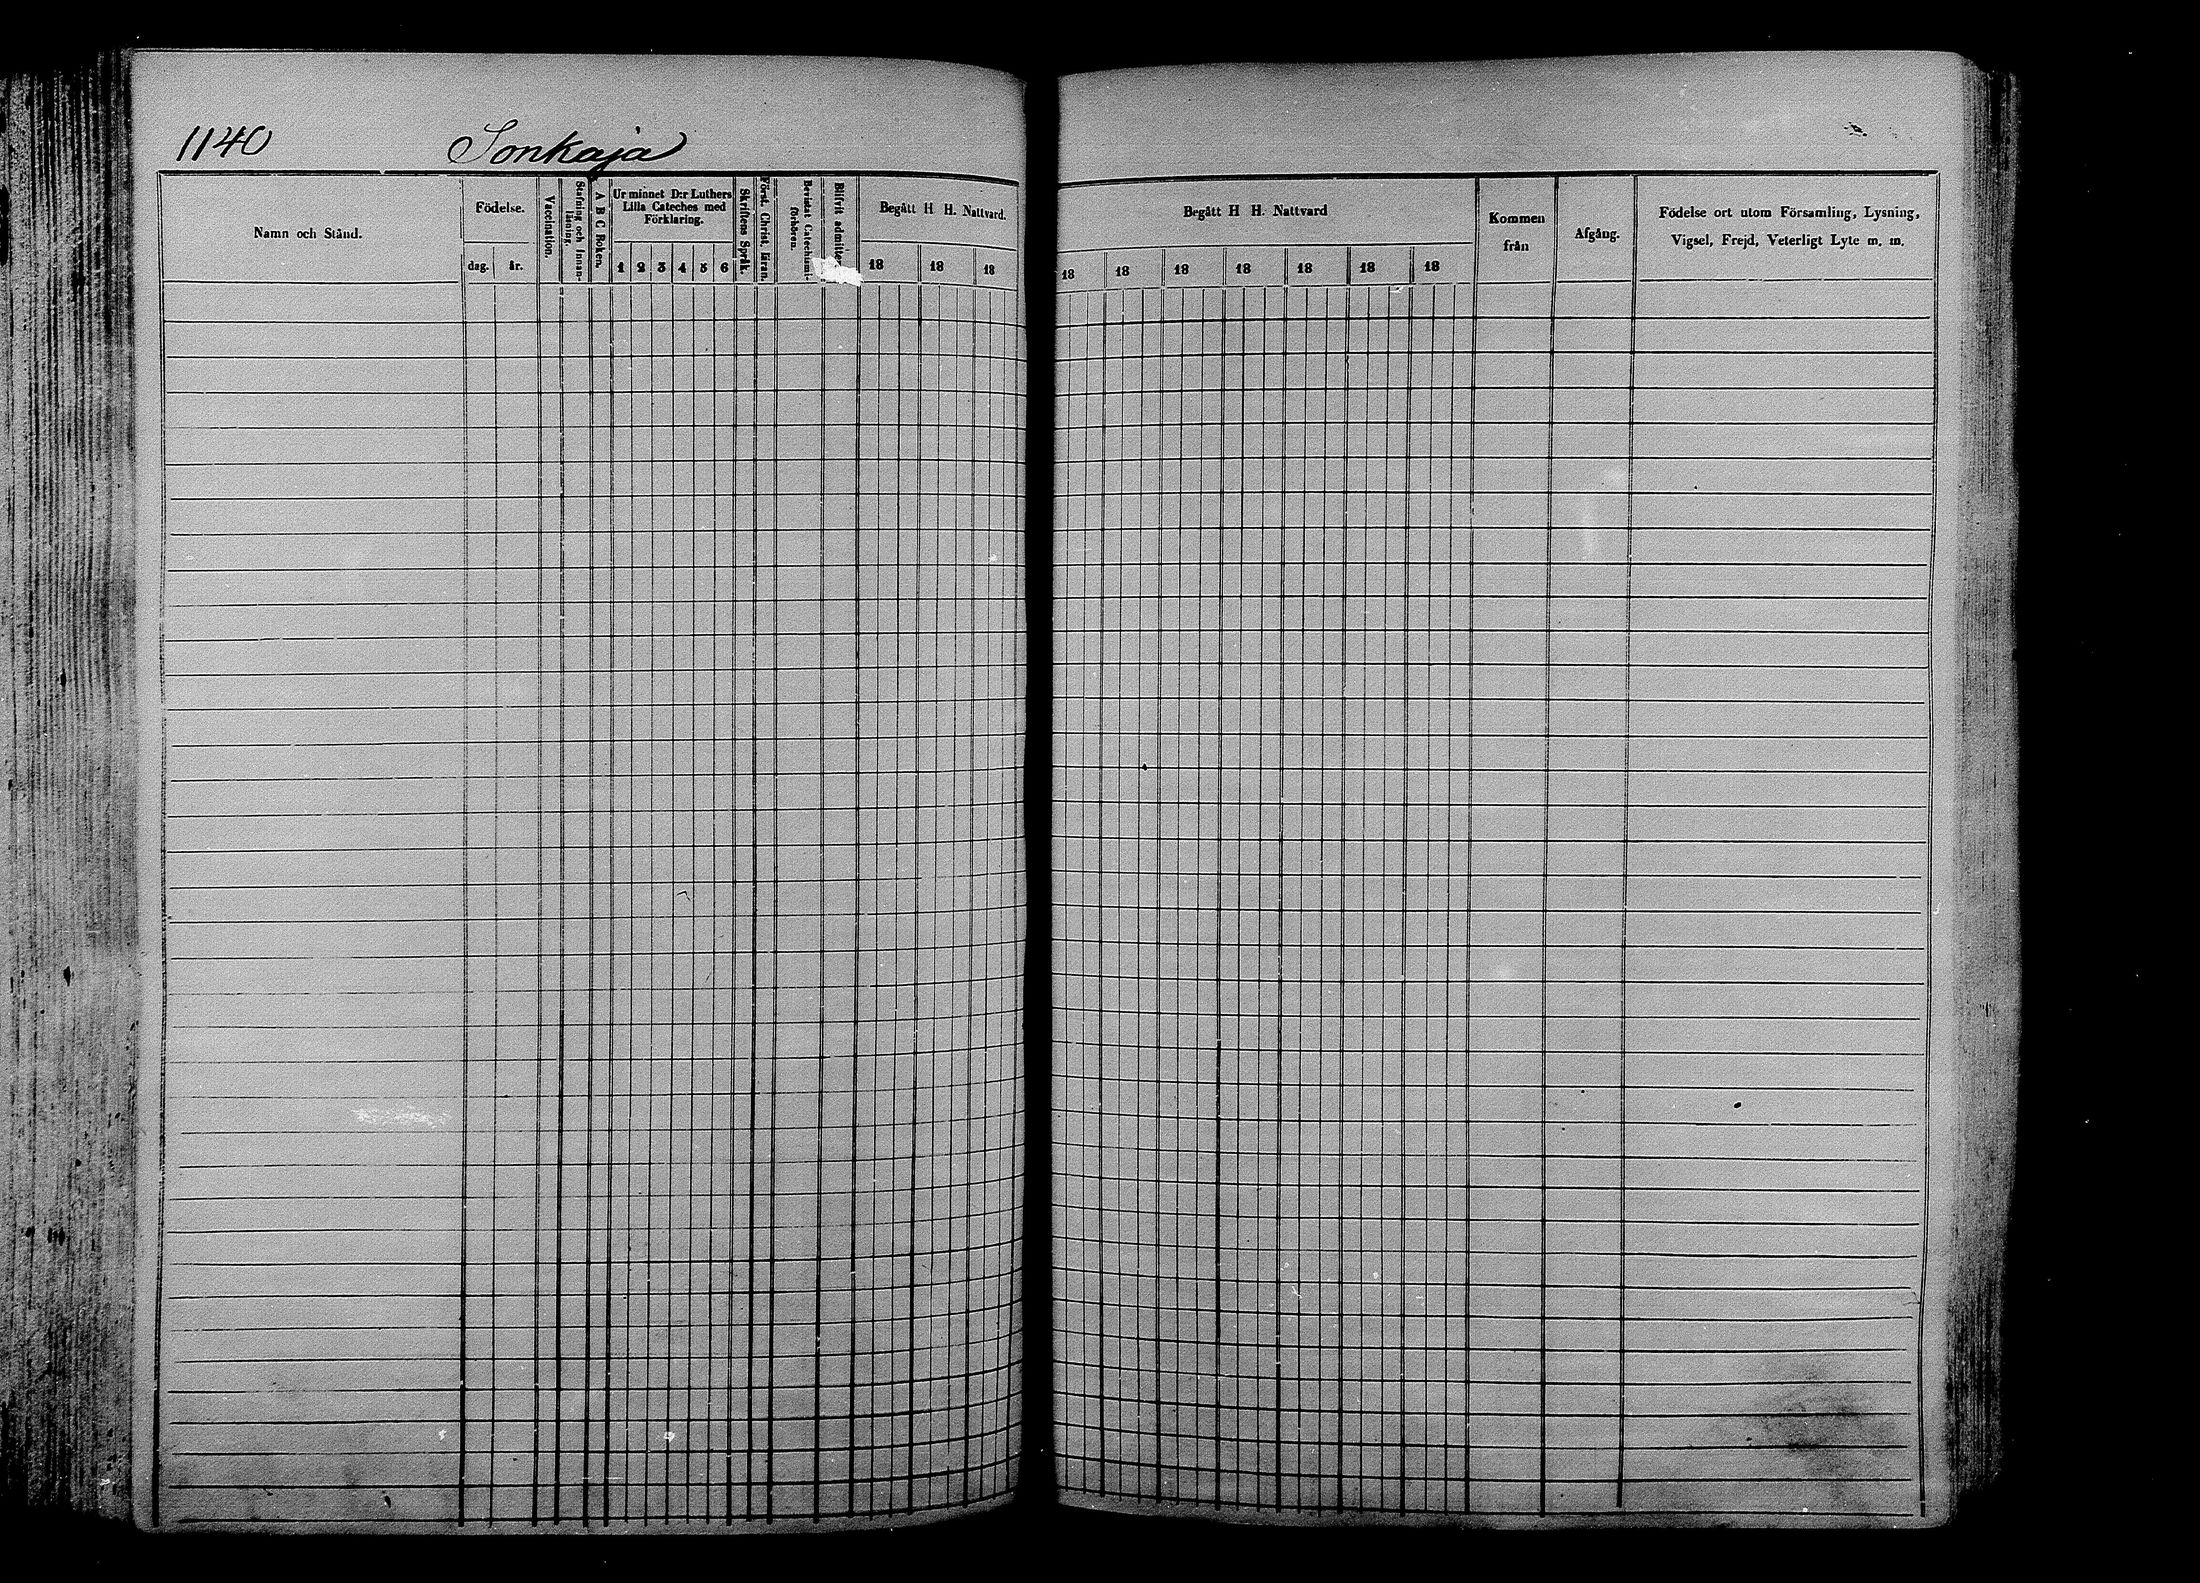 1140 Sonkaja
Namn och Stånd.
Födelse.
dag. år.
Vaccination.
Stafning och Innan-
läsning.
A B C Boken.
Ur minnet D:r Luthers
Lilla Cateches med
Förklaring.
1 2 3 4 5 6
Skriftens Språk.
Först. Christ. läran.
Bevistat Catechismi-
förhören.
Blifvit admitte
Begått H H. Nattvard.
18 18 18
Begått H H. Nattvard
18 18 18 18 18 18 18
Kommen
från
Afgång.
Födelse ort utom Församling, Lysning,
Vigsel, Frejd, Veterligt Lyte m. m.